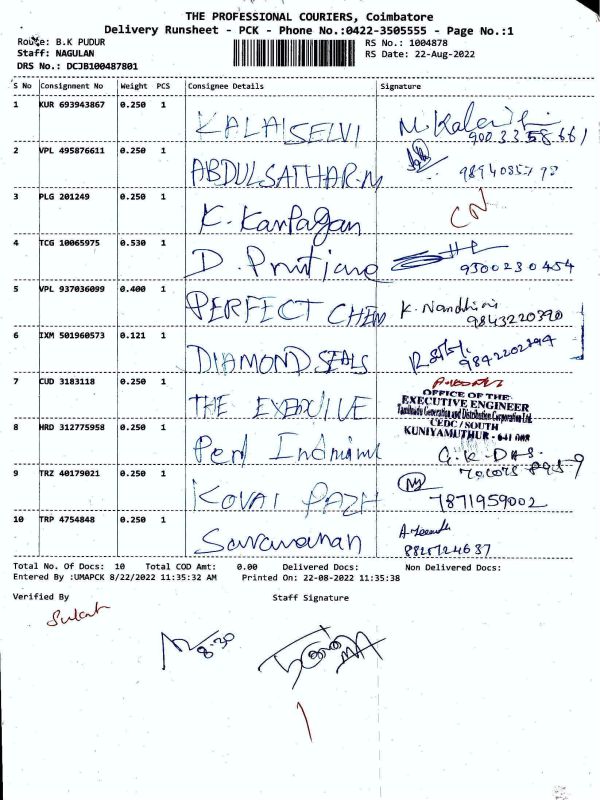 THE PROFESSIONAL COURIERS, Coimbatore
Delivery Runsheet - PCK - Phone No.:0422-3505555 - Page No.:1
Route: B.K PUDUR
RS No.: 1004878
Staff: NAGULAN
RS Date: 22-Aug-2022
DRS No.: DCJB100487801
S No Consignment No Weight PCS Consignee Details Signature
1 KUR 693943867 0.250 1 KALAISELVI
900 33 58 661
2 VPL 495876611 0.250 1 ABDULSATHAR.M
3 PLG 201249 0.250 1 K. Karpagan CN
4 TCG 10065975 0.530 1 D.
9300230454
5 VPL 937036099 0.400 1 PERFECT CHEM K. Nandhini
9843220390
6 IXM 501960573 0.121 1 DIAMOND SEALS
7 CUD 3183118 0.250 1 THE
OFFICE OF THE
EXECUTIVE ENGINEER
Tamilnadu Generation and Distribution Corporation Ltd.
CEDC / SOUTH
KUNIYAMUTHUR - 641 008
8 HRD 312775958 0.250 1 G.K. DAS
9 TRZ 40179021 0.250 1 KOVAI PAZH
7871959002
10 TRP 4754848 0.250 1 Saravanan
Total No. Of Docs: 10 Total COD Amt: 0.00 Delivered Docs: Non Delivered Docs:
Entered By :UMAPCK 8/22/2022 11:35:32 AM Printed On: 22-08-2022 11:35:38
Verified By Staff Signature
8.30